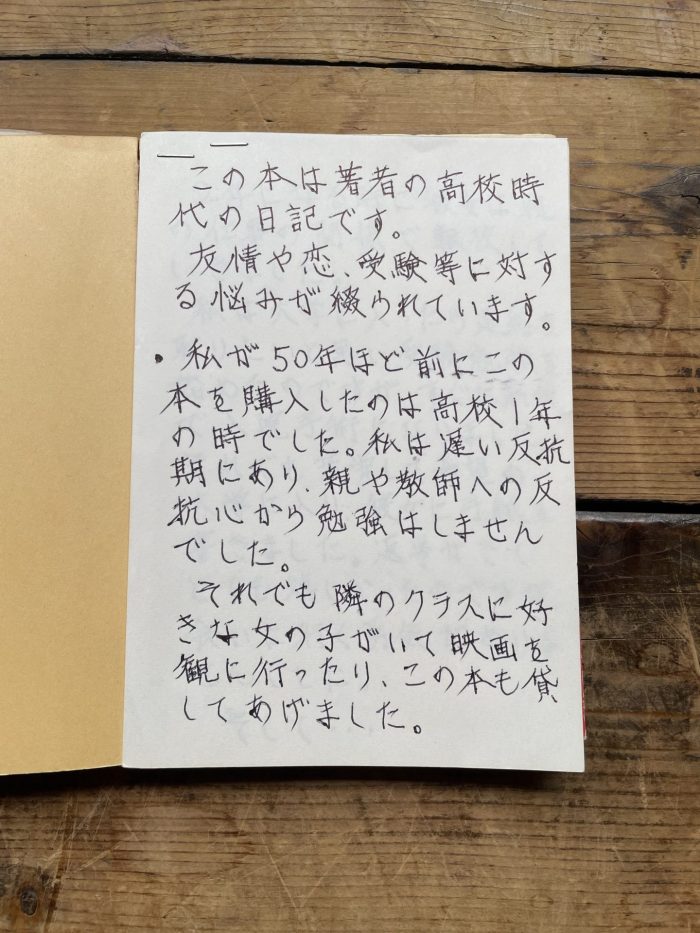 この本は著者の高校時
代の日記です。
友情や恋、受験等に対す
る悩みが綴られています。
・私が50年ほど前にこの
本を購入したのは高校1年
の時でした。私は遅い反抗
期にあり、親や教師への反
抗心から勉強はしません
でした。
それでも隣のクラスに好
きな女の子がいて映画を
観に行ったり、この本も貸
してあげました。